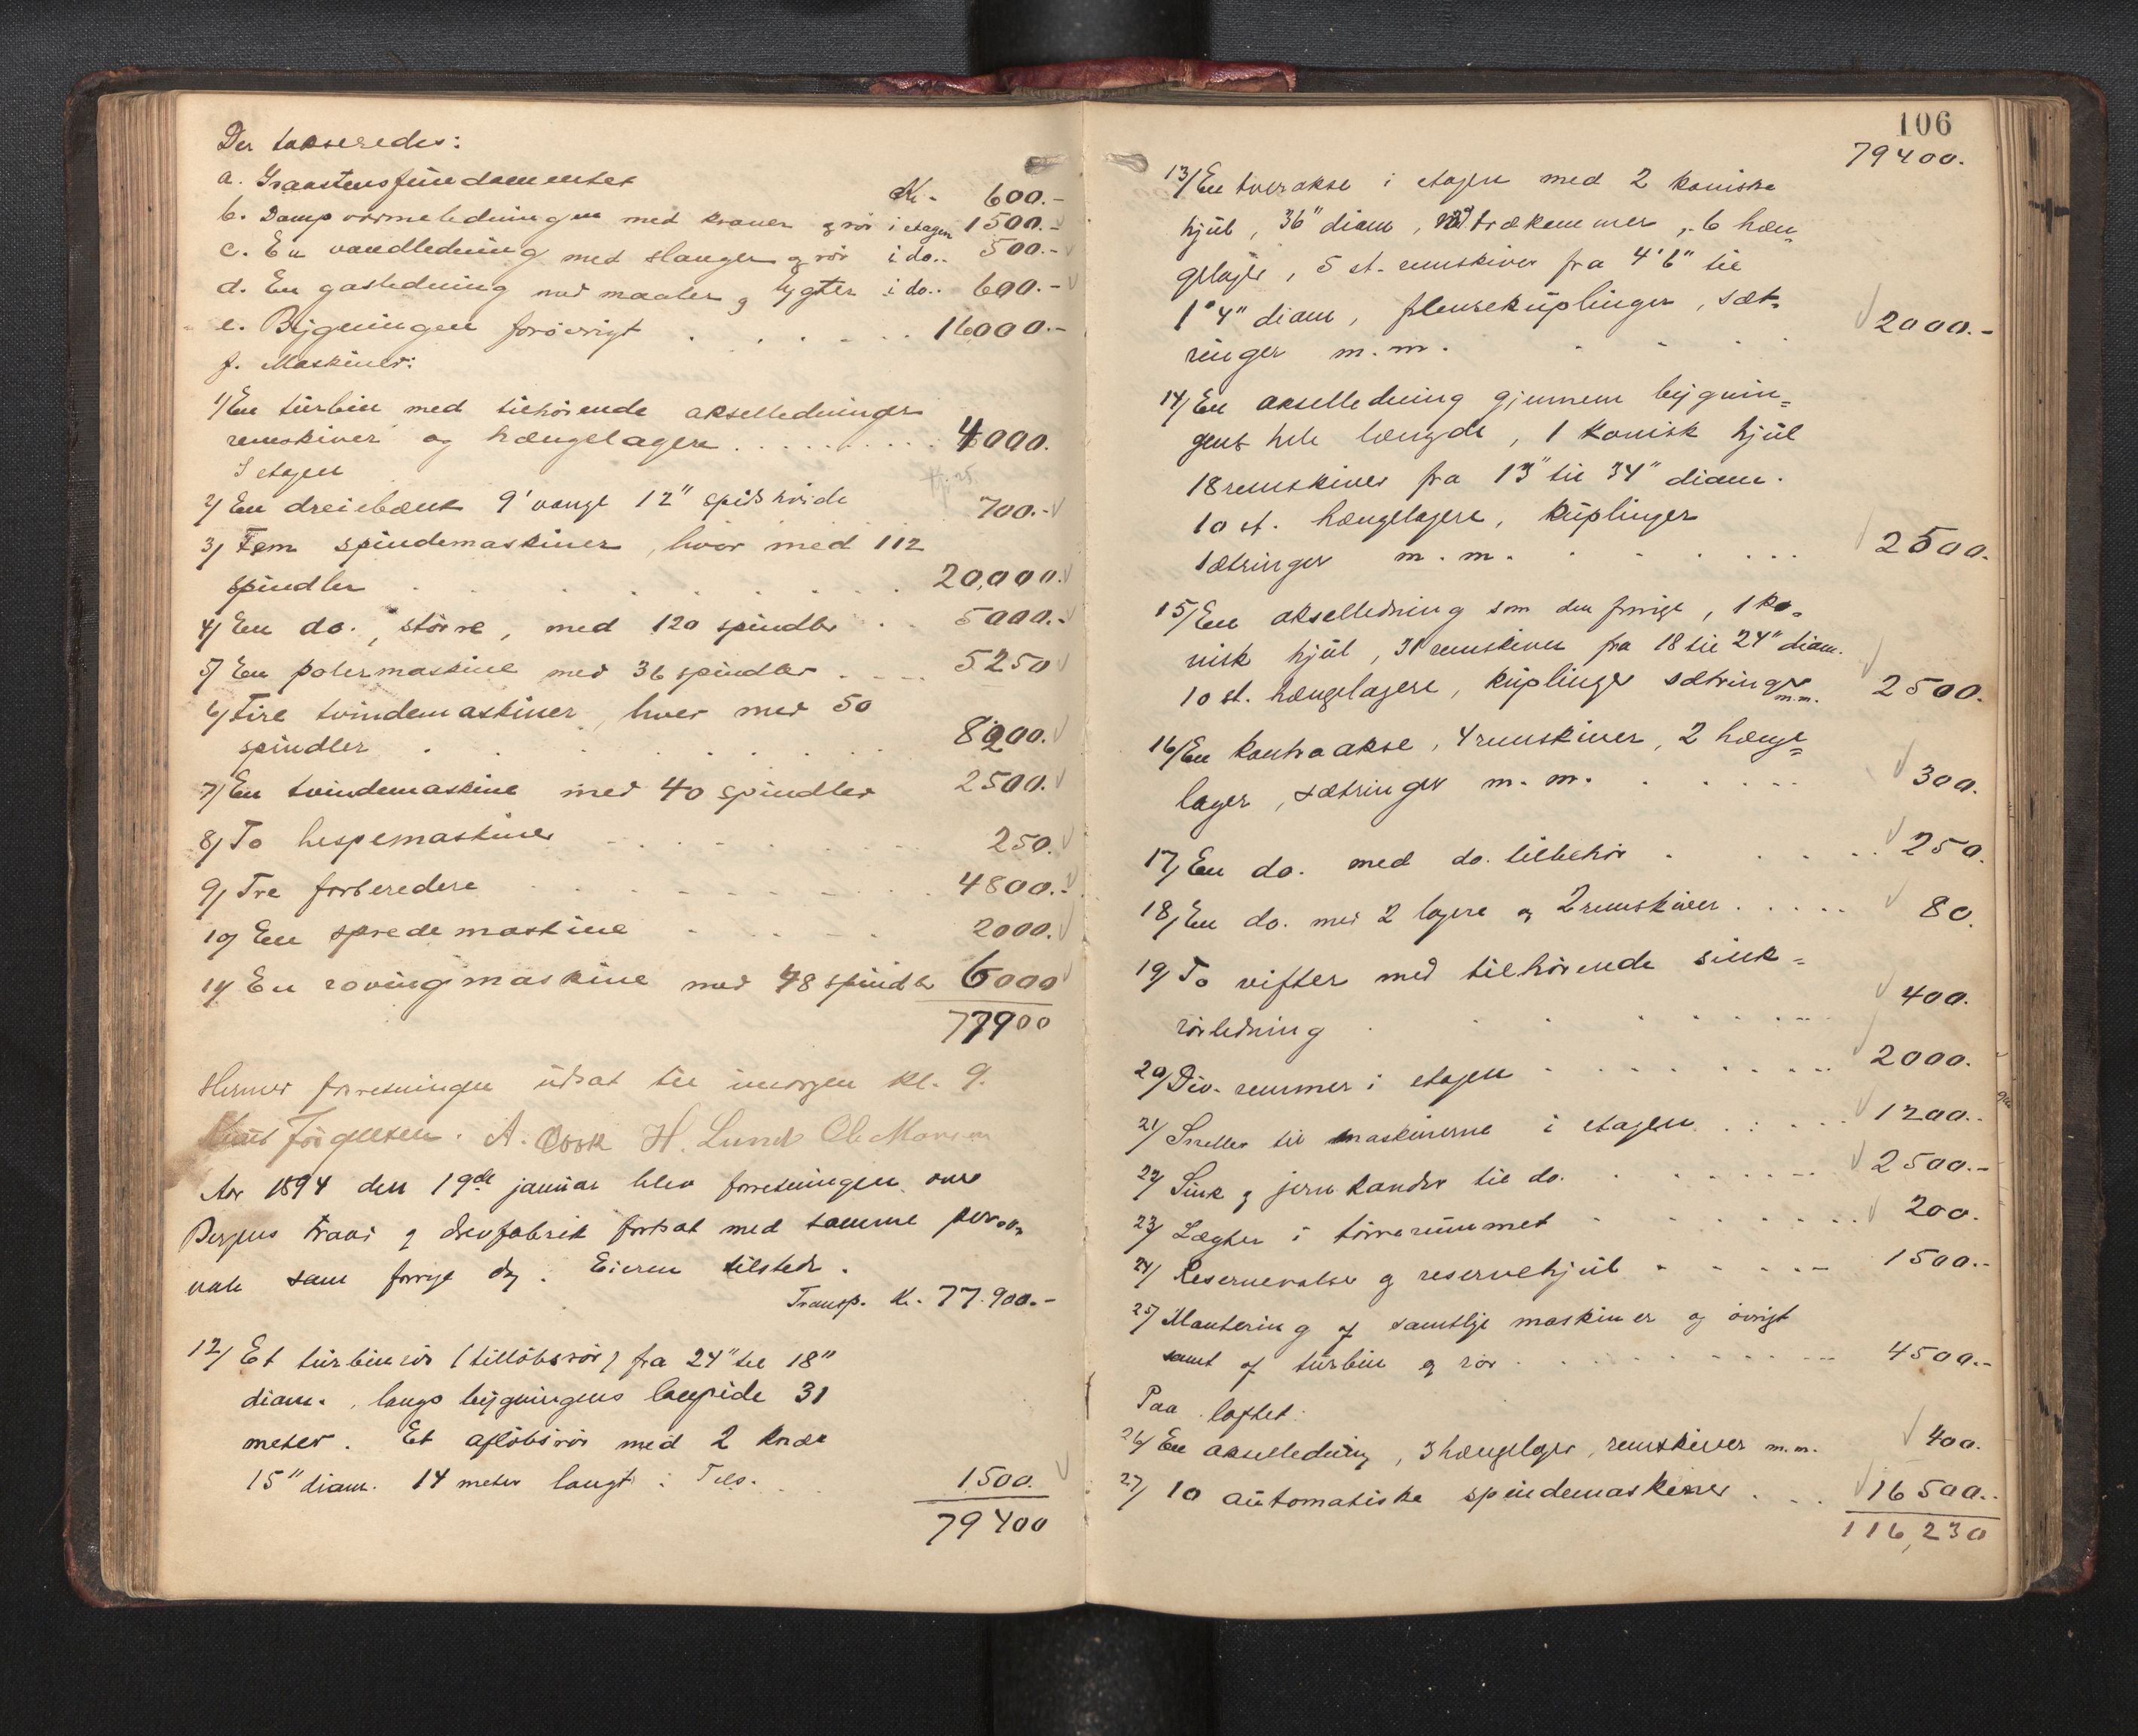 Der takseredes:
a. Graastensfundamentet Kr. 600.-
b. Dampvarmeledningen med kraner og rör i etagen 1500.-
c. En vandledning med slanger og rör i do.. 500.-
d. En gasledning med maaler og lygter i do.. 600.-
e. Bygningen forövrigt . . . . . . 16000.-
f. Maskiner:
1) En turbin med tilhörende akselledninger
remskiver og hængelagere . . . . . . . . 4000.
I etagen
2) En dreiebænk 9' vange 12" spidshöide 700.-
3) Fem spindemaskiner, hver med 112
spindler . . . . . . . 20,000.
4) En do., större, med 120 spindler . . 5000.-
5) En polermaskine med 36 spindler . . . 5250
6) Fire tvindemaskiner, hver med 50
spindler . . . . . . . 8200.
7) En tvindemaskine med 40 spindler 2500.
8) To hespemaskiner . . . . . 250.
9) Tre forberedere . . . . . . 4800.-
10) En sprede maskine . . . . 2000.
11) En rovingmaskine med 48 spindler 6000
77900
Herner forretningen udsat til imorgen kl. 9.
Jörgensen. A. Cook H. Lund Ole Monsen
Aar 1894 den 19de januar blev forretningen over
Bergens traad og drevfabrik fortsat med samme perso=
nale som forrige dag. Eieren tilstede.
Transp. Kr. 77.900.-
12) Et turbinrör (tillöbsrör) fra 24" til 18"
diam., langs bygningens langside 31
meter. Et aflöbsrör med 2 knær
15" diam. 14 meter langt: Tils. . . 1500.
79400
106
79400.
13) En tverakse i etagen med 2 koniske
hjul, 36" diam, med trækammer, 6 hæn=
gelagre, 5 st. remskiver fra 4'6" til
1'4" diam, flensekuplinger, sæt=
ringer m.m. . . . . 2000.-
14) En akselledning gjennem bygnin=
gens hele længde, 1 konisk hjul
18 remskiver fra 13" til 34" diam.
10 st. hængelagere, kuplinger
sætringer m.m. . . . . . . 2500.
15) En akselledning som den forrige, 1 ko=
nisk hjul, 31 remskiver fra 18 til 24" diam.
10 st. hængelagere, kuplinger sætringer m.m. 2500.
16) En kontraakse, 4 remskiver, 2 hænge=
lager, sætringer m.m. . . . . . 300.
17) En do. med do. tilbehör . . . . . 250.
18) En do. med 2 lagere og 2 remskiver . . . . . 80.
19) To vifter med tilhörende sink=
rörledning . . . . . . . . 400.
20) Div. remmer i etagen . . . . . . . 2000.
21) Sneller til maskinerne i etagen . . . . 1200.-
22) Sink og jernkander til do. . . . . . . 2500.-
23) Lægter i törrerummet . . . . . . . 200.
24) Reservevalser og reservehjul . . . . . 1500.-
25) Montering af samtlige maskiner og övrigt
samt af turbin og rör . . . . . . . . . . 4500.-
Paa loftet:
26) En akselledning, 3 hængelager, remskiver m.m. 400.
27) 10 automatiske spindemaskiner . . . 16500..
116,230